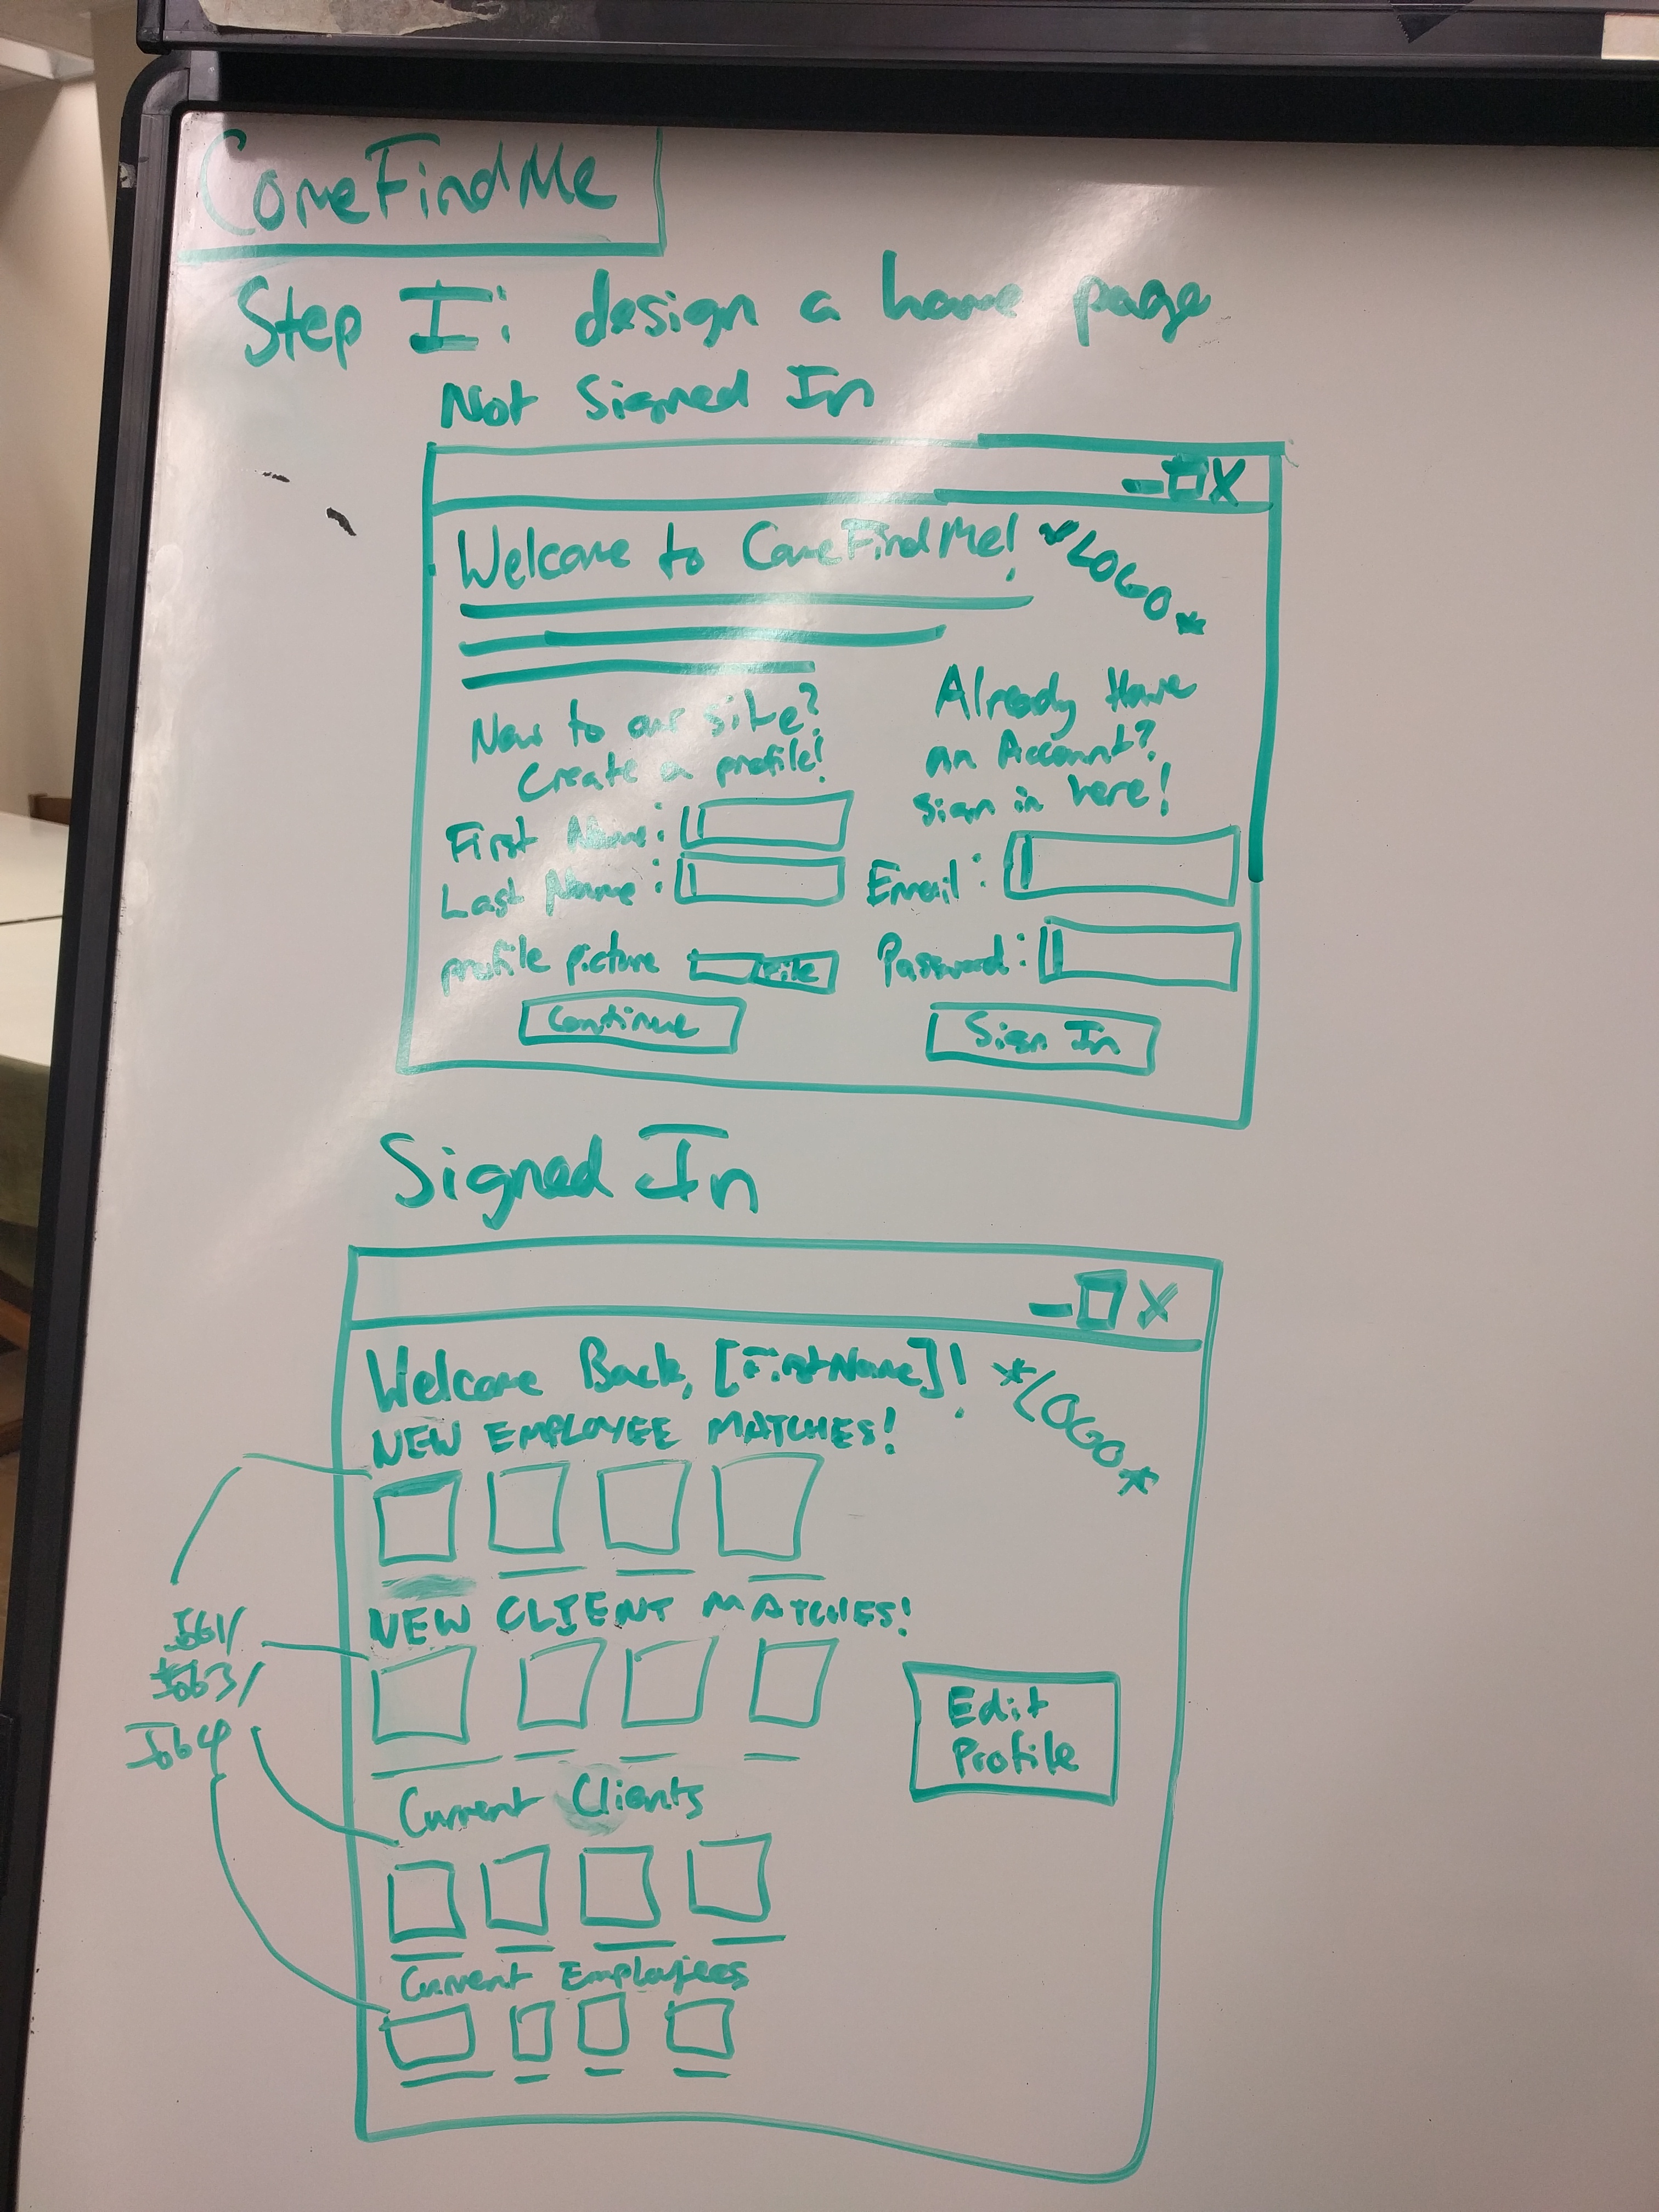 ComeFindMe
Step I: design a home page
Not Signed In
- □ X
Welcome to ComeFindMe! *LOGO*
New to our site?
Create a profile!
First Name:
Last Name:
profile picture File
Continue
Already Have
an Account?
Sign in here!
Email:
Password:
Sign In
Signed In
- □ X
Welcome Back, [FirstName]! *LOGO*
NEW EMPLOYEE MATCHES!
NEW CLIENT MATCHES!
Job1/
Job3/
Job4
Edit
Profile
Current Clients
Current Employees